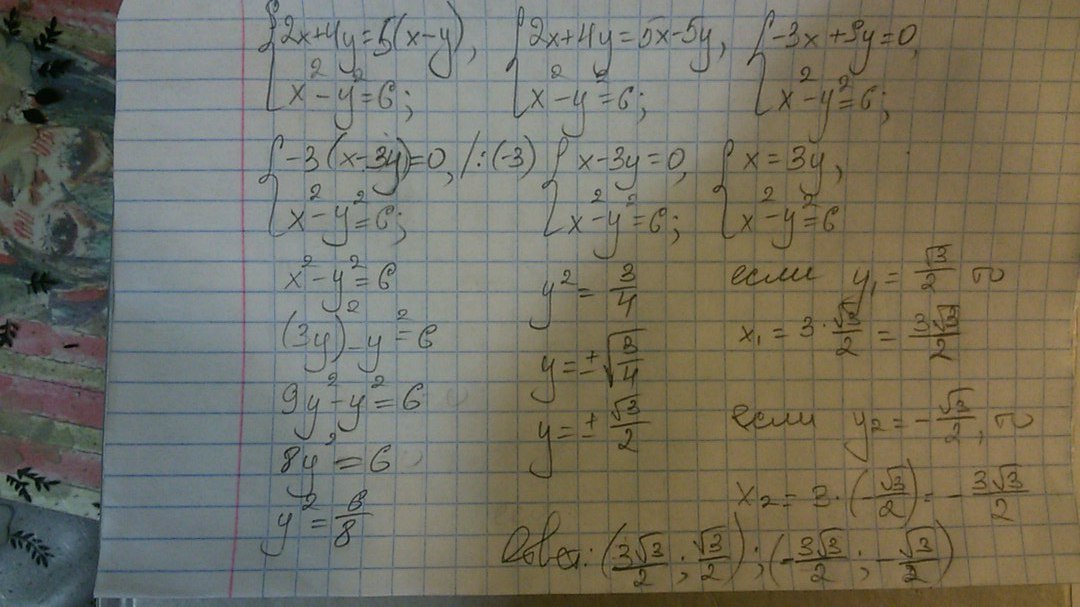 {2x+4y=5(x-y), {2x+4y=5x-5y, {-3x+9y=0,
{x²-y²=6; {x²-y²=6; {x²-y²=6;
{-3(x-3y)=0, /:(-3) {x-3y=0, {x=3y,
{x²-y²=6; {x²-y²=6; {x²-y²=6
x²-y²=6
(3y)²-y²=6
9y²-y²=6
8y²=6
y²=6/8
y²=3/4
y=±√(3/4)
y=±√3/2
если y₁=√3/2 τ
x₁=3·√3/2=3√3/2
если y₂=-√3/2, τ
x₂=3·(-√3/2)=-3√3/2
Ответ: (3√3/2; √3/2); (-3√3/2; -√3/2)